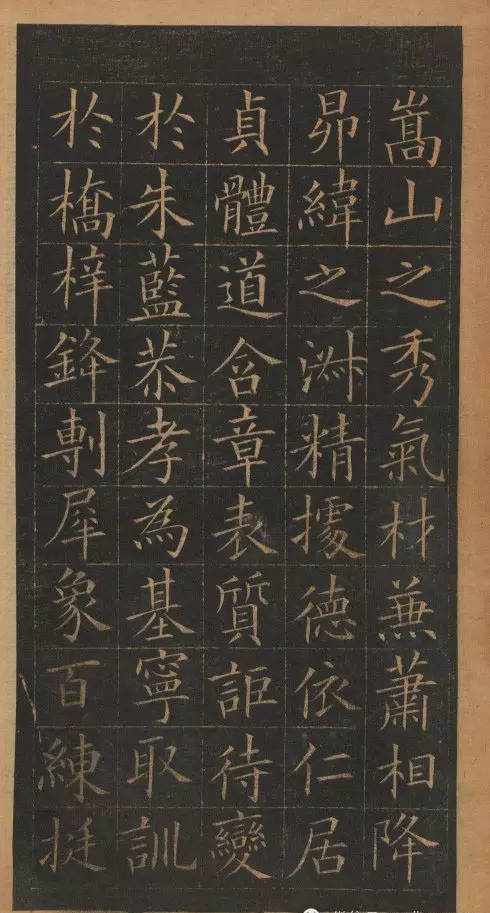 嵩山之秀氣材蕪蕭相降
昴緯之淋精據德依仁居
貞體道含章表質詎待變
於朱藍恭孝為基寧取訓
於橋梓鋒剸犀象百練挺